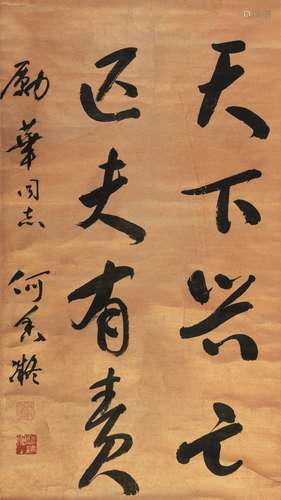 天下兴亡
匹夫有责
励华同志
何香凝